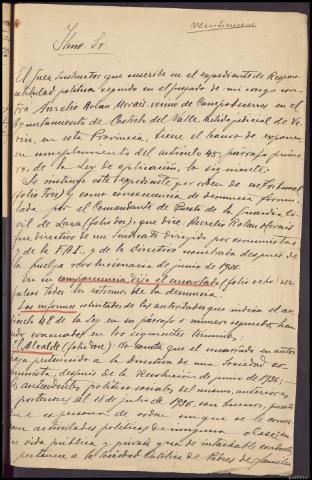 veintinueve
Ilmo Sr.
El Juez Instructor que suscribe en el expediente de Respon-
sabilidad política seguido en el Juzgado de mi cargo con-
tra Aurelio Rolan Morais, vecino de Campobecerros en el
Ayuntamiento de Castrelo del Valle, Partido judicial de Ve-
rín, en esta Provincia, tiene el honor de exponer
en cumplimiento del artículo 45; párrafo prime-
ro; de la Ley de aplicación, lo siguiente:
Se instruye este expediente por orden de ese Tribunal
(folio tres) y como consecuencia de denuncia formu-
lada por el Comandante de Puesto de la Guardia Ci-
vil de Laza (folio dos), que dice: Aurelio Rolan Morais
fue directivo de un Sindicato dirigido por comunistas
y de la F.A.I., y de la Directiva nombrada después de
la huelga revolucionaria de junio de 1936.
En su comparecencia dijo el encartado (folio ocho)
todos los extremos de la denuncia.
Los informes solicitados de las autoridades que indica el ar-
tículo 48 de la Ley en su párrafo 1 número segundo, han
sido evacuados en los siguientes términos:
Alcalde (folio doce):
perteneciendo a la Directiva de una Sociedad co-
munista, después de la Revolución de junio de 1936;
los antecedentes político sociales del mismo, anteriores
y posteriores al 18 de julio de 1936, son buenos, puesto
que es persona de orden sin que se le conoz-
can actividades políticas de ninguna clase; en
su vida pública y privada es de intachable conducta,
pertenece a la Sociedad Católica de Padres de familia